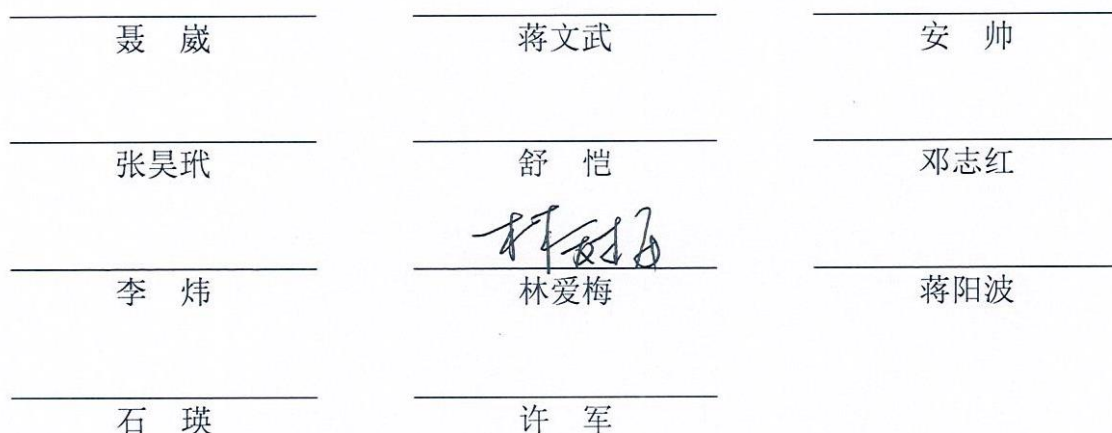 聂 崴 蒋文武 安 帅
张昊玳 舒 恺 邓志红
林爱梅
李 炜 林爱梅 蒋阳波
石 瑛 许 军